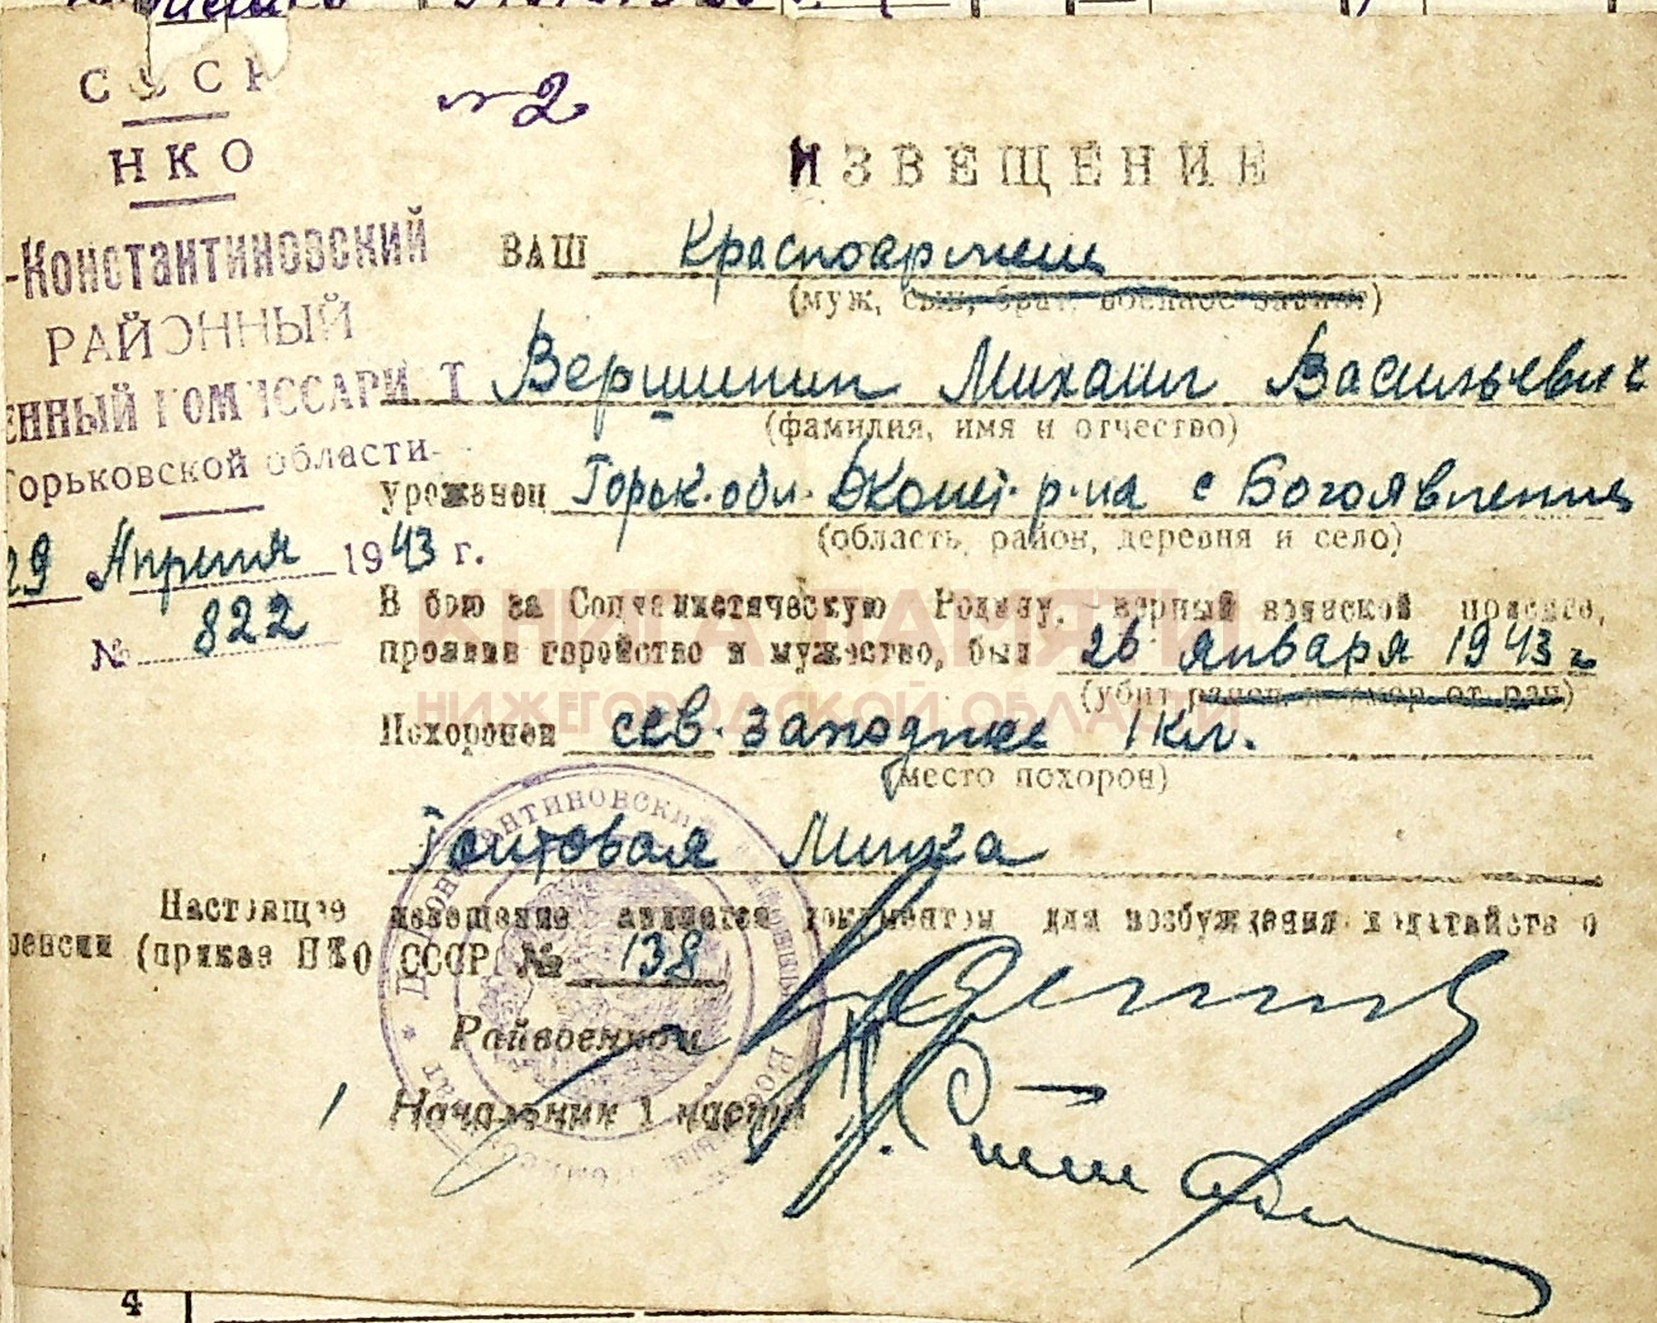 СССР
НКО
-Константиновский
РАЙОННЫЙ
ЕННЫЙ КОМИССАРИАТ
Горьковской области
29 Апреля 1943 г.
№ 822
№ 2
ИЗВЕЩЕНИЕ
ВАШ Красноармеец
(муж, сын, брат, военное звание)
Вершинин Михаил Васильевич
(фамилия, имя и отчество)
уроженец Горьк. обл. ДКонст. р-на с Богоявление
(область, район, деревня и село)
В бою за Социалистическую Родину, верный воинской присяге,
проявив геройство и мужество, был 26 января 1943 г
(убит, ранен и умер от ран)
Похоронен сев. западнее 1 км.
(место похорон)
Минка
Настоящее извещение является документом для возбуждения ходатайств о
пенсии (приказ НКО СССР № 138
Райвоенком
Начальник 1 части
КНИГА ПАМЯТИ
НИЖЕГОРОДСКОЙ ОБЛАСТИ
4